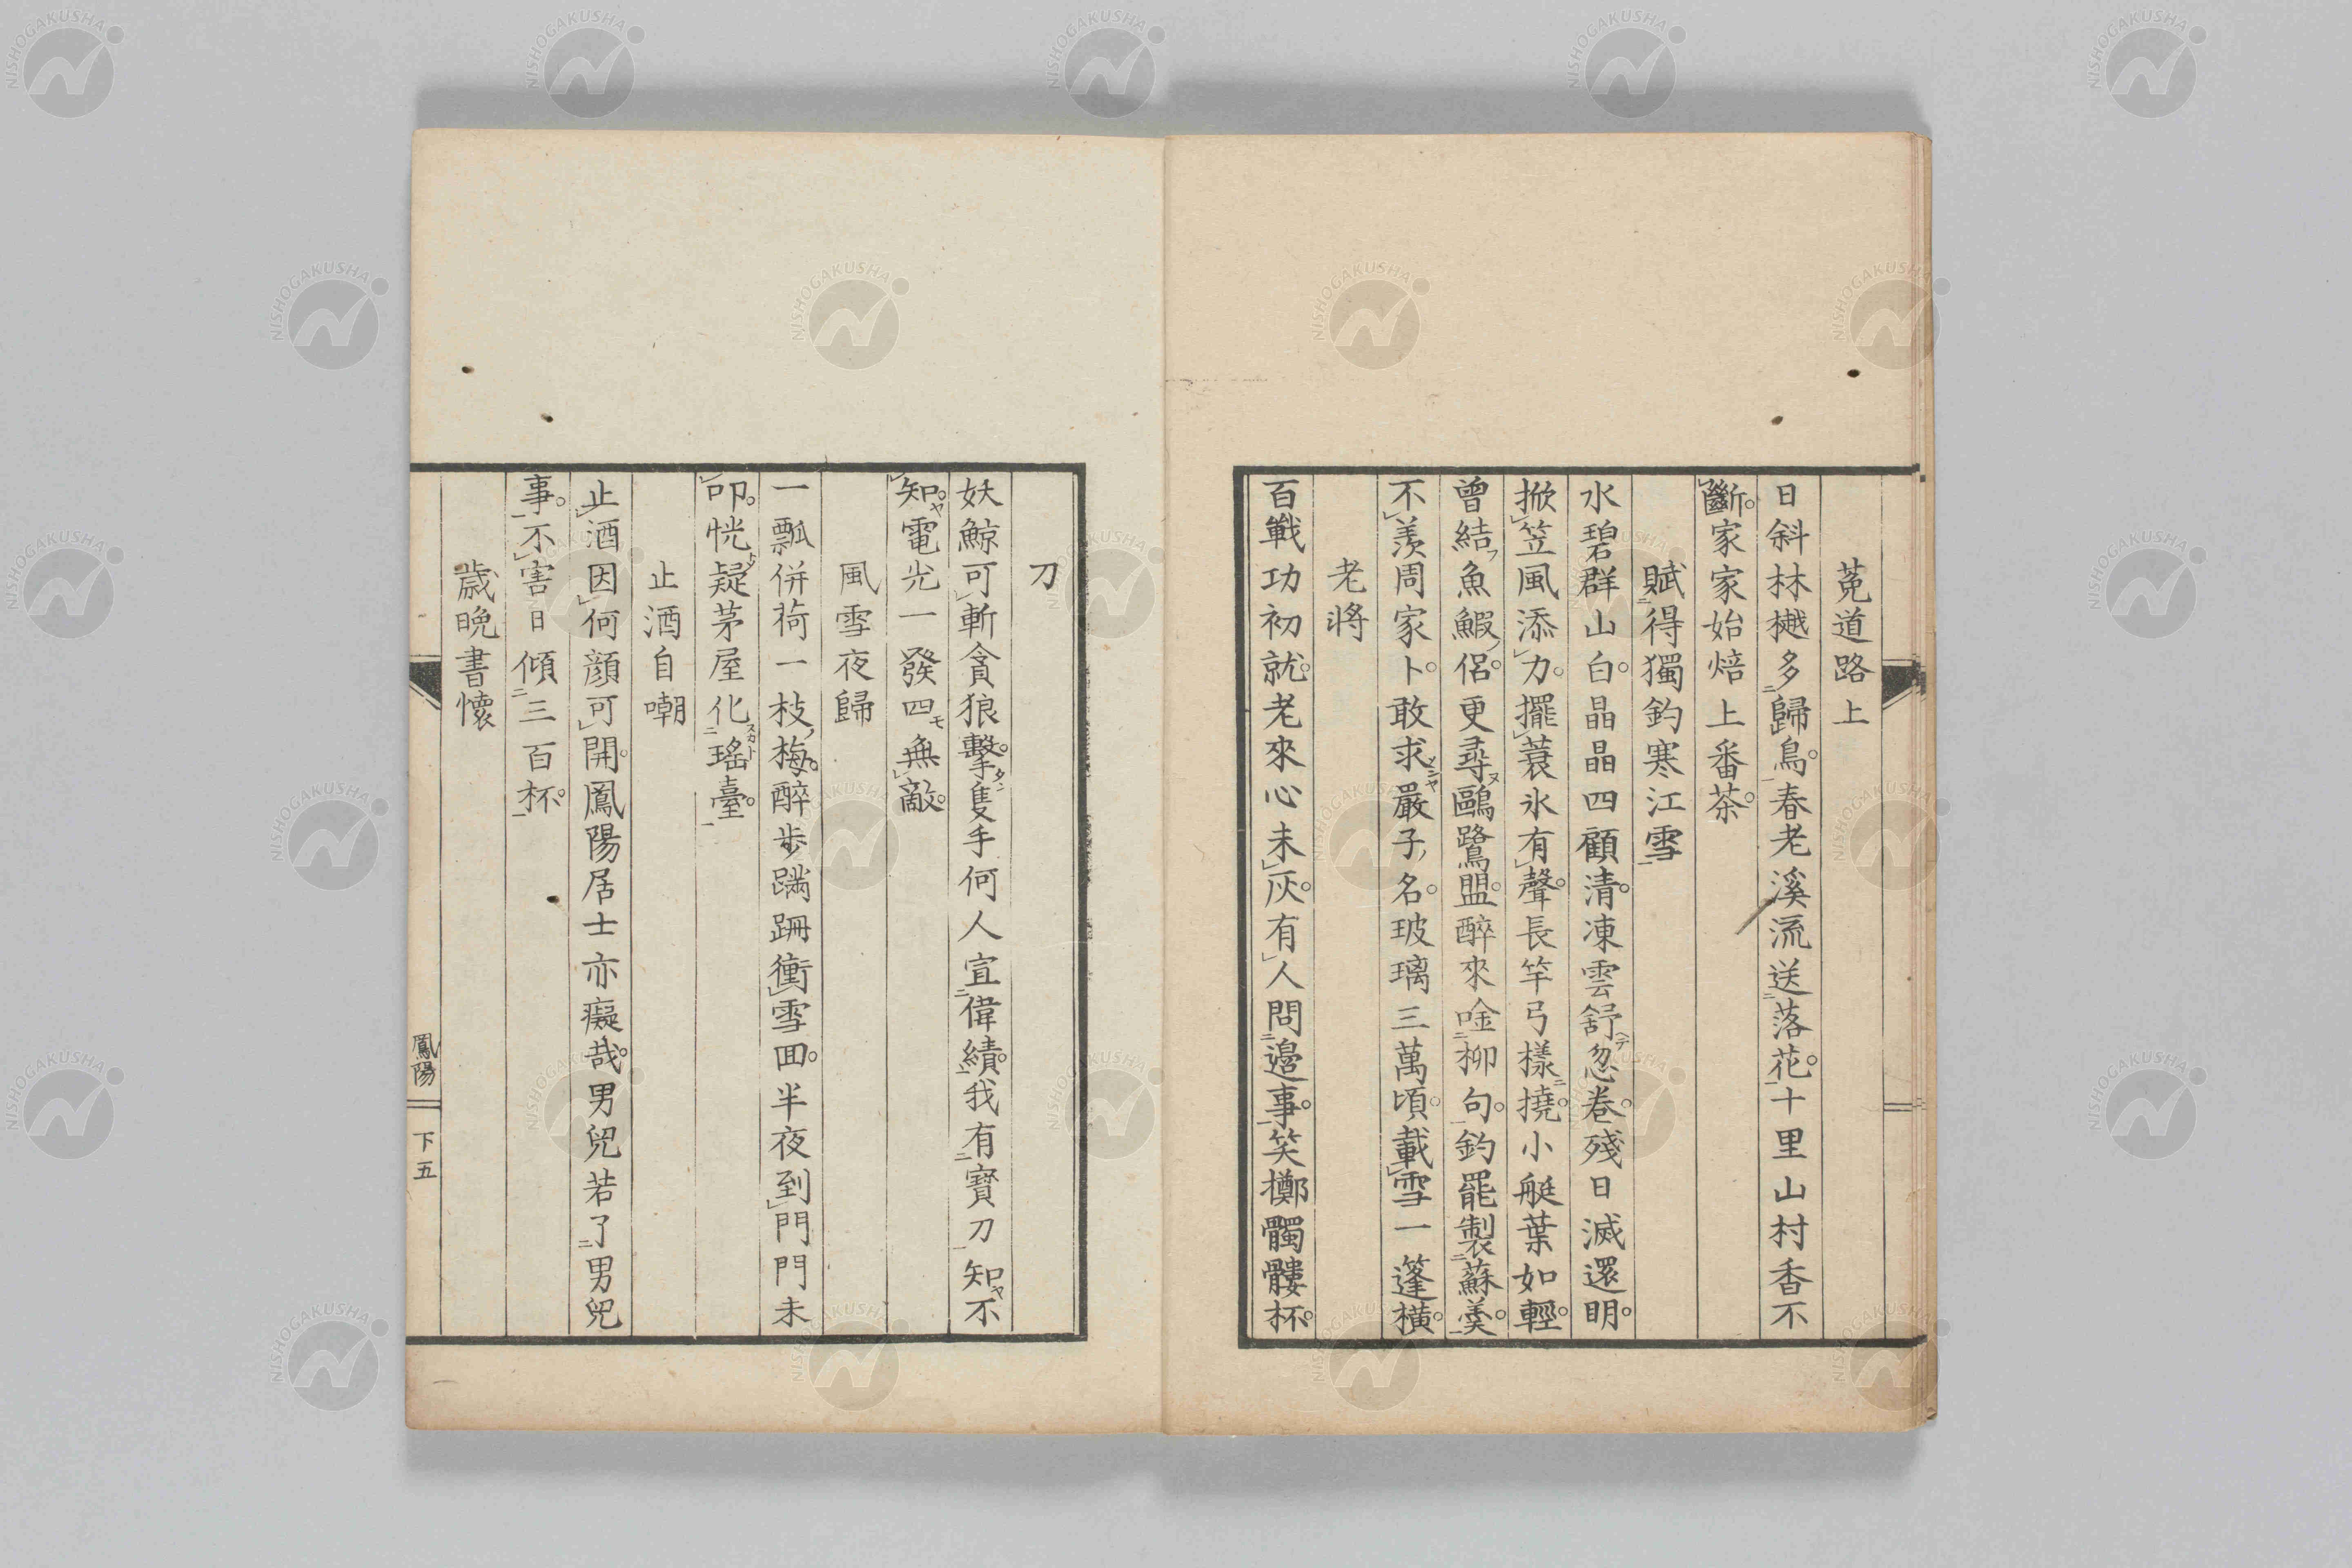 莵道路上
日斜林樾多歸鳥。春老溪流送落花。十里山村香不
斷。家家始焙上番茶。
賦得獨釣寒江雪
水碧群山白。晶晶四顧清。凍雲舒忽卷。殘日滅還明。
掀笠風添力。擺蓑氷有聲。長竿弓樣撓。小艇葉如輕。
曾結魚鰕侶。更尋鷗鷺盟。醉來唫柳句。釣罷製蘇羹。
不羨周家卜。敢求嚴子名。玻璃三萬頃。載雪一篷横。
老將
百戰功初就。老來心未灰。有人問邊事。笑擲髑髏杯。
刀
妖鯨可斬貪狼擊。隻手何人宣偉績。我有寳刀知不
知。電光一發四無敵。
風雪夜歸
一瓢併荷一枝梅。醉步蹣跚衝雪回。半夜到門門未
叩。恍疑茅屋化瑤臺。
止酒自嘲
止酒因何顔可開。鳳陽居士亦癡哉。男兒若了男兒
事。不害日傾三百杯。
歳晩書懷
鳳陽
下五
NISHOGAKUSHA